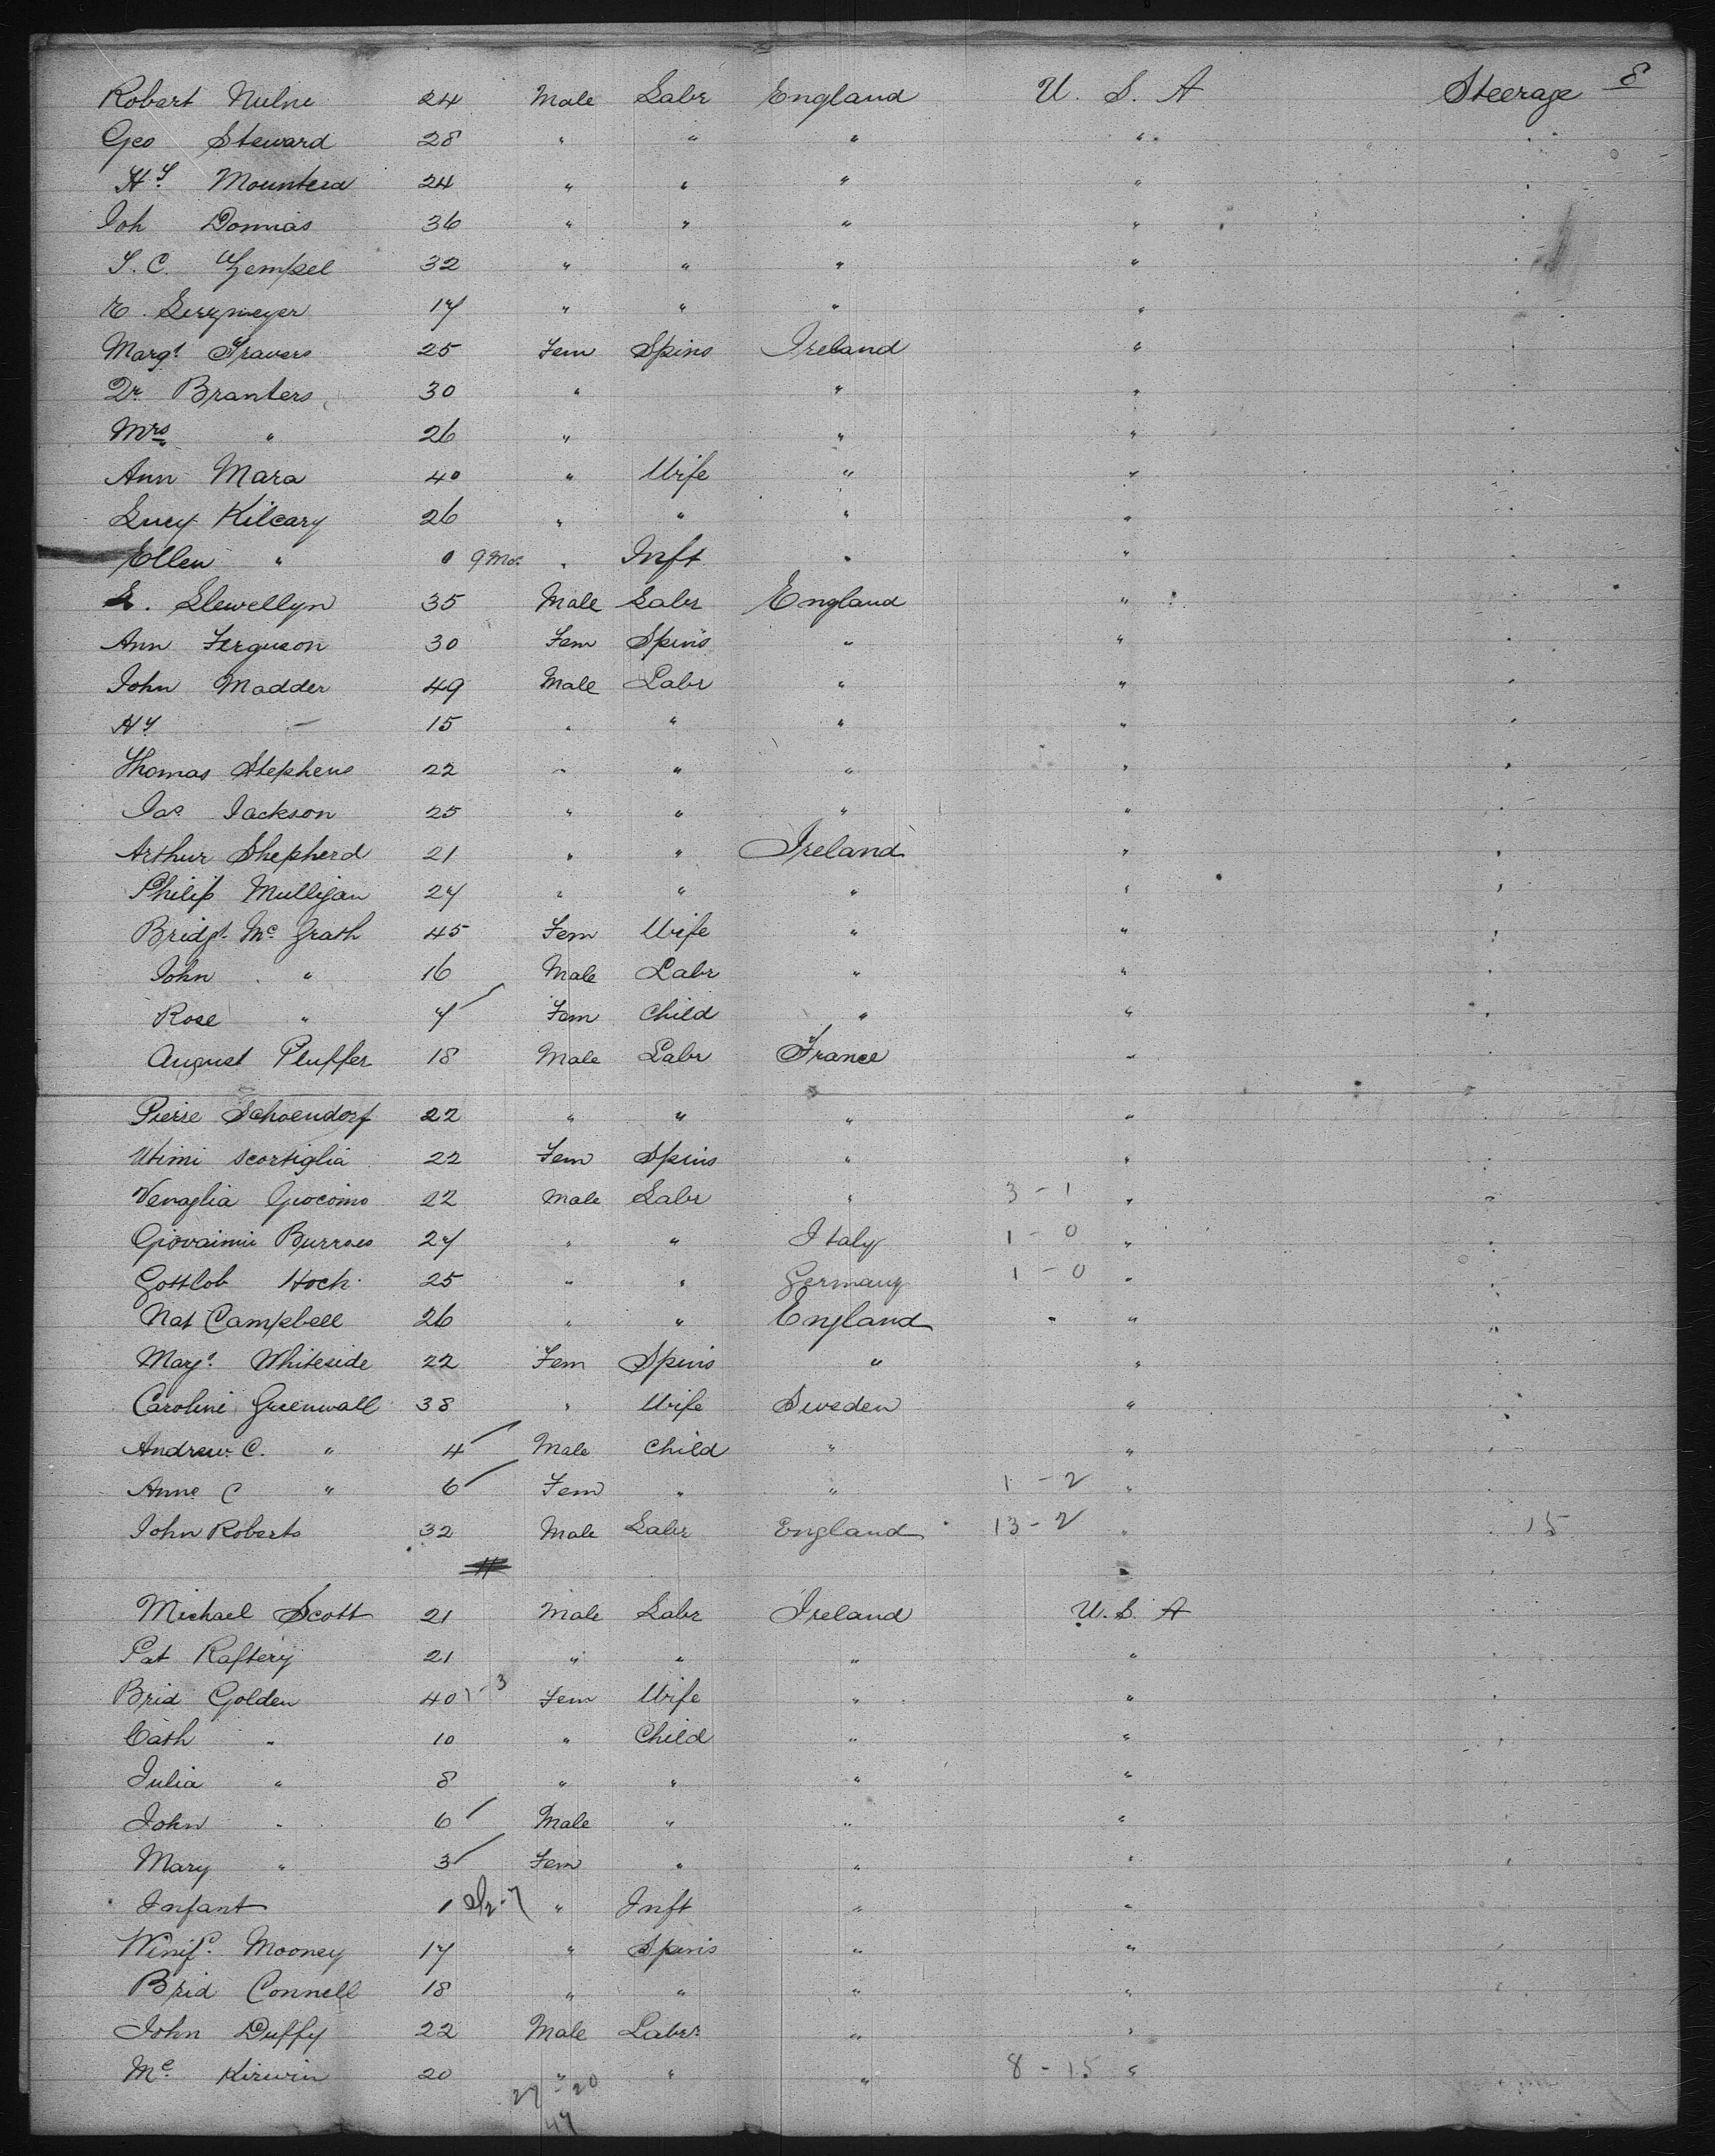 8
Robert Milne 24 Male Labr England U. S. A Steerage
Geo Steward 28 " " " " "
Hy Mountera 24 " " " " "
Joh Donnias 36 " " " " "
S. C. Gempel 32 " " " " "
17 " " " " "
Margt Travers 25 Fem Spins Ireland " "
Dr Branters 30 " " " "
Mrs " 26 " " " "
Ann Mara 40 " Wife " " "
Lucy Kilcary 26 " " " " "
Ellen " 0 9 Mos " Inft " " "
Llewellyn 35 Male Labr England " "
Ann Ferguson 30 Fem Spins " " "
John Madder 49 Male Labr " " "
Hy — 15 " " " " "
Thomas Stephens 22 " " " " "
Jas Jackson 25 " " " " "
Arthur Shepherd 21 " " Ireland " "
Philip Mulligan 27 " " " " "
Bridgt McGrath 45 Fem Wife " " "
John " 16 Male Labr " " "
Rose " 7 Fem Child " " "
August Pluffer 18 Male Labr France " "
Pierre Schoendorf 22 " " " " "
Utimi Scortiglia 22 Fem Spins " " "
Venaglia Giocomo 22 Male Labr " 3 - 1 " "
Burraes 27 " " Italy 1 - 0 " "
Gottlob Hoch 25 " " Germany 1 - 0 " "
Nat Campbell 26 " " England " "
Margt Whiteside 22 Fem Spins " " "
Caroline Greenwall 38 " Wife Sweden " "
Andrew C. " 4 Male Child " " "
Anne C " 6 Fem " " 1 - 2 " "
John Roberts 32 Male Labr England 13 - 2 " " 15
Michael Scott 21 Male Labr Ireland U. S. A "
Pat Raftery 21 " " " " "
Brid Golden 40 1 - 3 Fem Wife " " "
Cath " 10 " Child " " "
Julia " 8 " " " " "
John " 6 Male " " " "
Mary " 3 Fem " " " "
Infant 1 " Inft " " "
Winifd Mooney 17 " Spins " " "
Brid Connell 18 " " " " "
John Duffy 22 Male Labr " " "
Mc Kirwin 20 " " " 8 - 15 " "
27 20
47